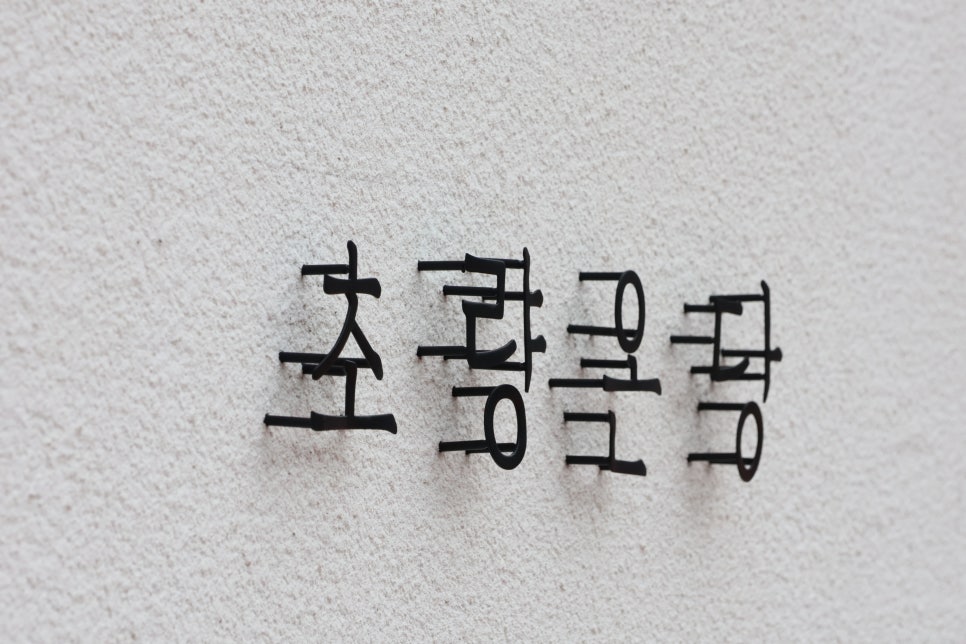 초량온당